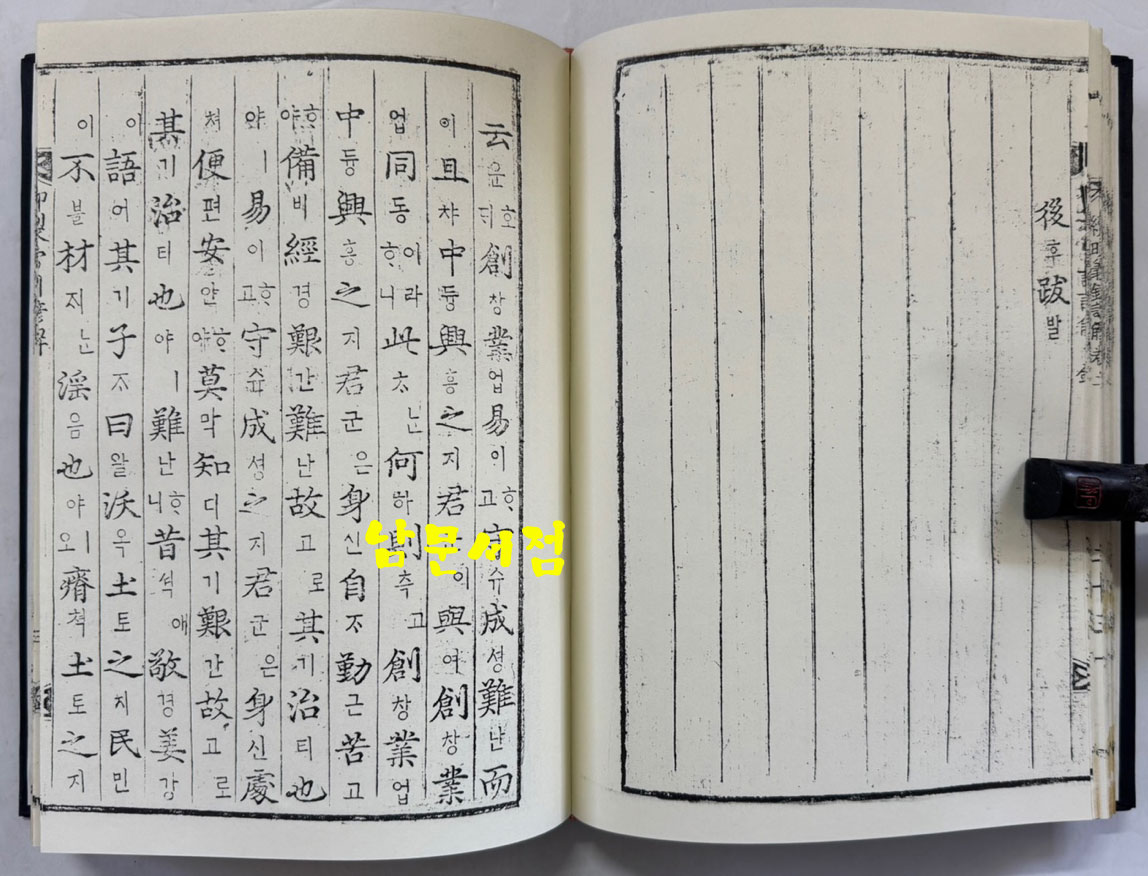 後후跋발
云운호ᄃᆡ創창業업易이ᄒᆞ고守슈成셩難난而
이且챠中듕興흥之지君군이與여創창業
업同동이라ᄒᆞ니此ᄎᆞᄂᆞᆫ何하則측고創창業업
中듕興흥之지君군은身신自ᄌᆞ勤근苦고
ᄒᆞ야備비經경艱간難난故고로其기治티也
야ㅣ易이ᄒᆞ고守슈成셩之지君군은身신處
쳐便편安안ᄒᆞ야莫막知디其기艱간故고로
其기治티也야ㅣ難난ᄒᆞ니昔셕애敬경姜강
이語어其기子ᄌᆞ曰왈沃옥土토之지民민
이不블材ᄌᆡᄂᆞᆫ淫음也야ㅣ오瘠쳑土토之지
남문서점